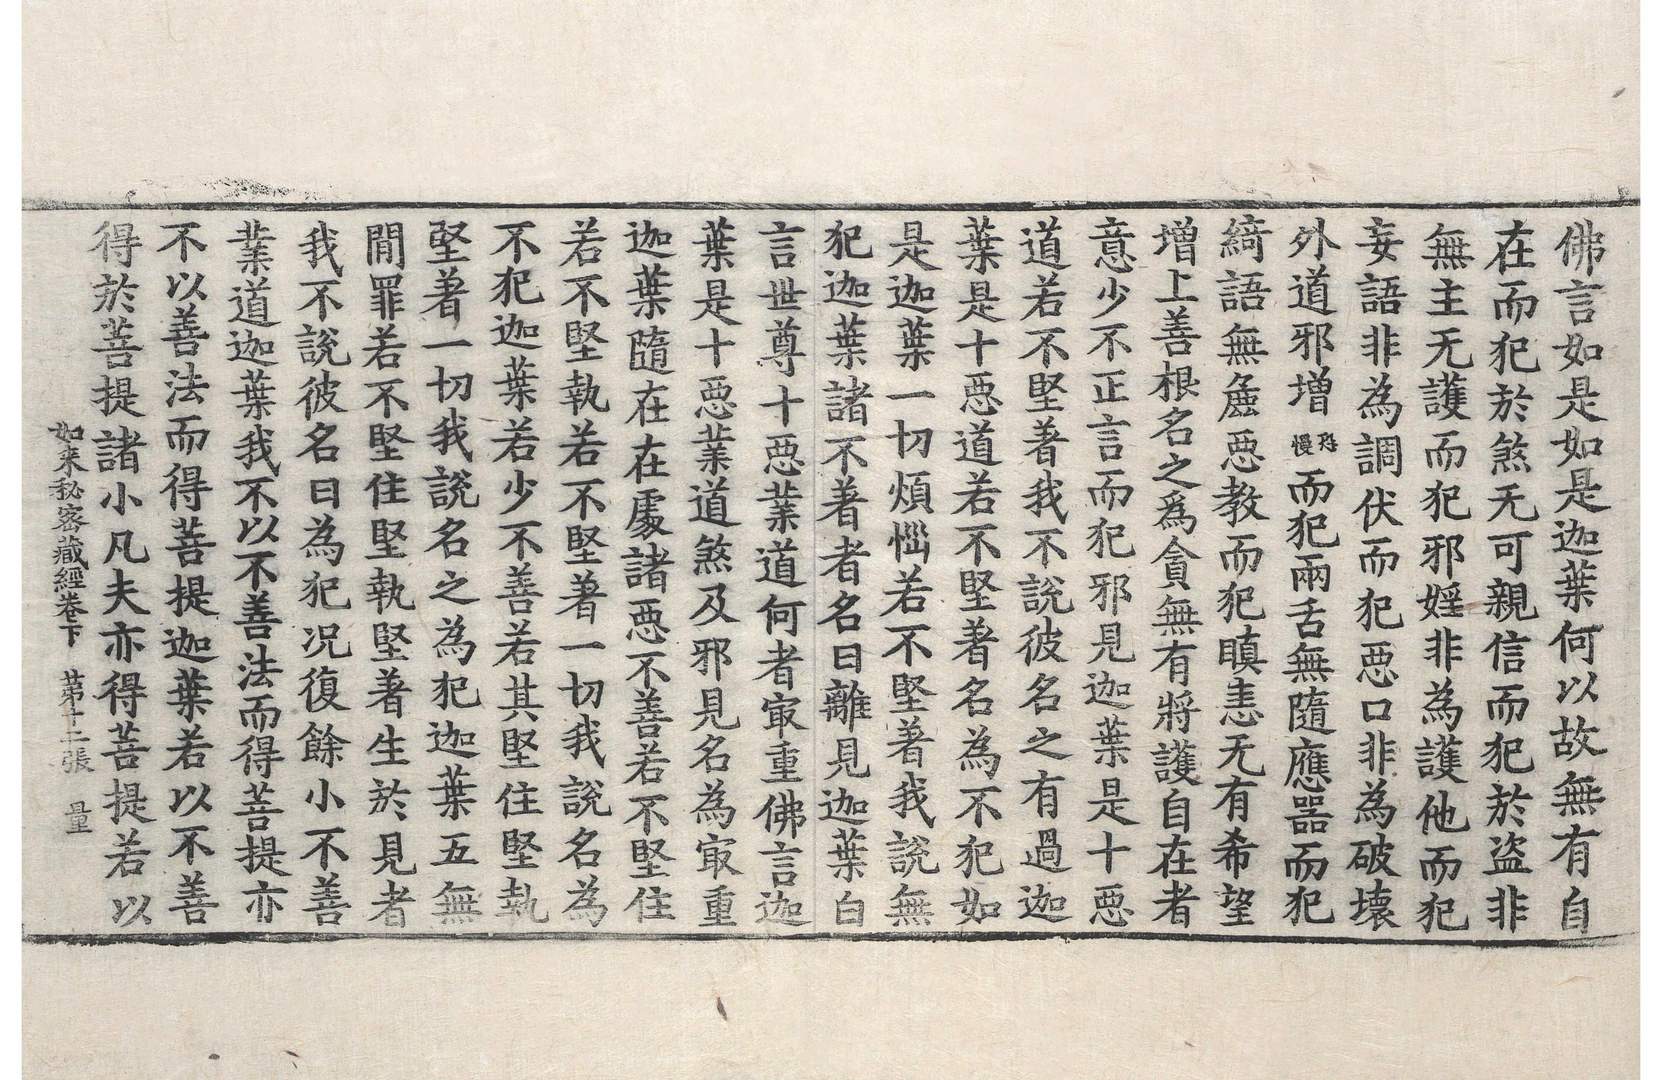 佛言如是如是迦葉何以故無有自
在而犯於煞无可親信而犯於盜非
無主无護而犯邪婬非為護他而犯
妄語非為調伏而犯惡口非為破壞
外道邪增慢而犯兩舌無隨應器而犯
綺語無麁惡教而犯瞋恚无有希望
增上善根名之爲貪無有將護自在者
意少不正言而犯邪見迦葉是十惡
道若不堅著我不說彼名之有過迦
葉是十惡道若不堅著名為不犯如
是迦葉一切煩惱若不堅著我說無
犯迦葉諸不著者名曰離見迦葉白
言世尊十惡業道何者㝡重佛言迦
葉是十惡業道煞及邪見名為㝡重
迦葉隨在在處諸惡不善若不堅住
若不堅執若不堅著一切我說名為
不犯迦葉若少不善若其堅住堅執
堅著一切我說名之為犯迦葉五無
間罪若不堅住堅執堅著生於見者
我不說彼名曰為犯况復餘小不善
業道迦葉我不以不善法而得菩提亦
不以善法而得菩提迦葉若以不善
得於菩提諸小凡夫亦得菩提若以
如来秘密藏經卷下 第十二張 量